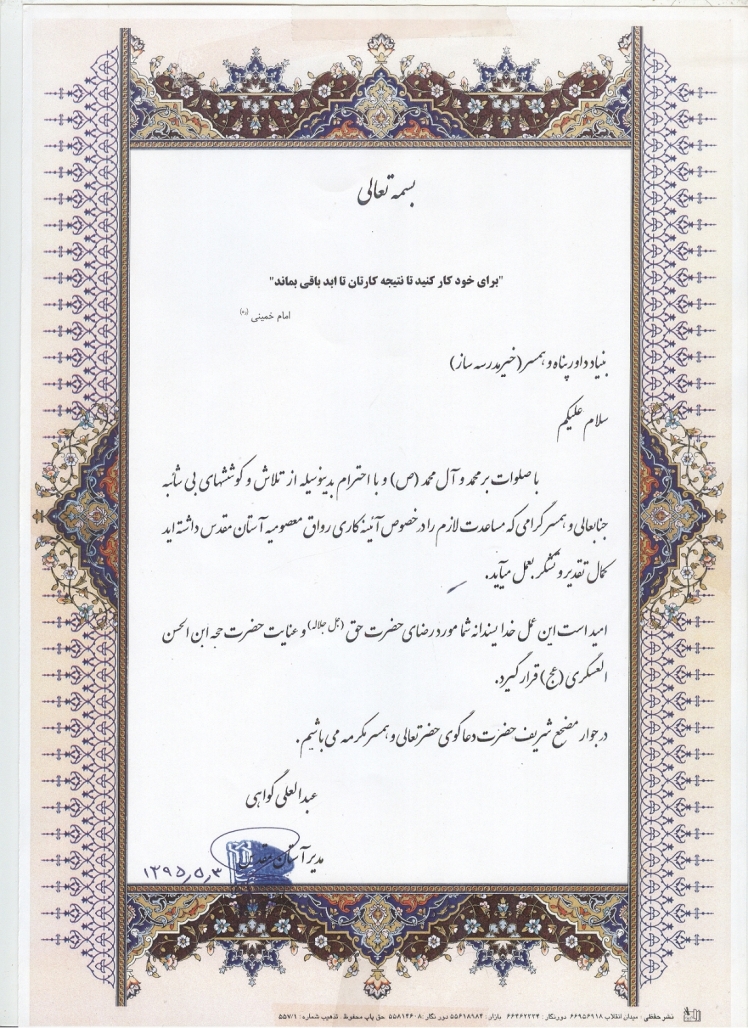 بسمه تعالی
"برای خود کار کنید تا نتیجه کارتان تا ابد باقی بماند"
امام خمینی (ره)
بنیاد داورپناه و همسر (خیر مدرسه ساز)
سلام علیکم
با صلوات بر محمد و آل محمد (ص) و با احترام بدینوسیله از تلاش و کوششهای بی شائبه
جنابعالی و همسر گرامی که مساعدت لازم را در خصوص آئینه کاری رواق معصومیه آستان مقدس داشته اید
کمال تقدیر و تشکر بعمل میآید.
امید است این عمل خدا پسندانه شما مورد رضای حضرت حق (جل جلاله) و عنایت حضرت حجه ابن الحسن
العسگری (عج) قرار گیرد.
در جوار مضجع شریف حضرت دعاگوی حضرتعالی و همسر مکرمه می باشیم.
عبدالعلی گواهی
مدیر آستان مقدس
۱۳۹۵,۵,۳
نشر حفظی : میدان انقلاب ۶۶۹۵۶۹۱۸ دورنگار : ۶۶۴۶۲۲۳۴ بازار : ۵۵۶۱۸۹۸۴ دور نگار : ۵۵۸۱۴۶۰۸ حق چاپ محفوظ تذهیب شماره : ۵۵۷/۱